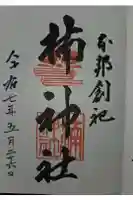 本邦創祀
楠神社
令和七年五月二十六日